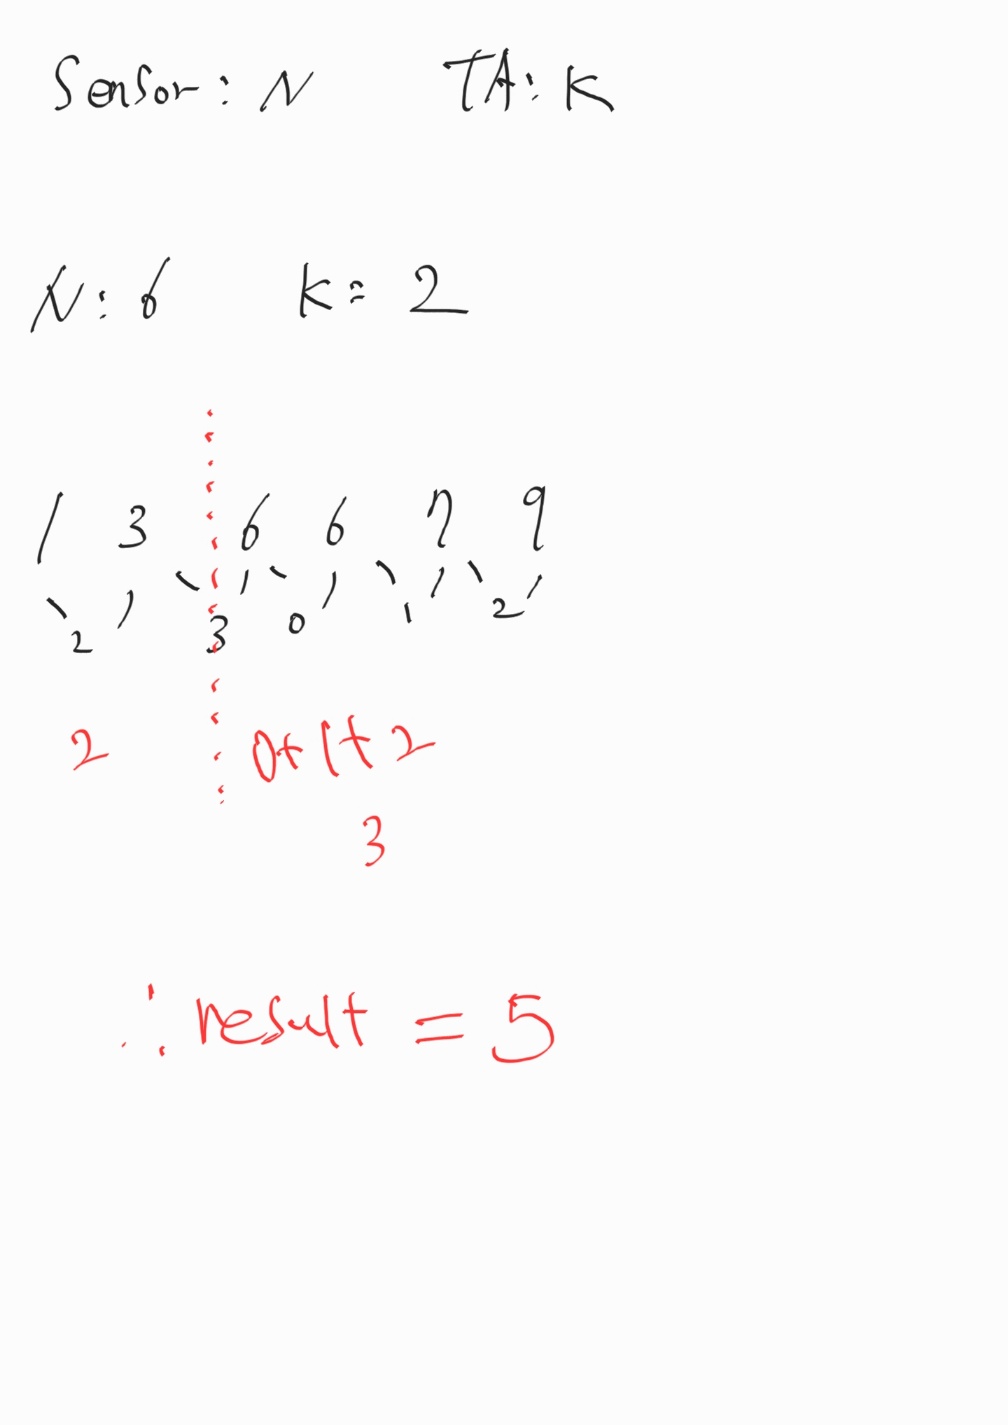 Sensor: N TA: K
N: 6 k= 2
1 3 6 6 7 9
2 3 0 1 2
2 0+1+2
3
∴ result = 5